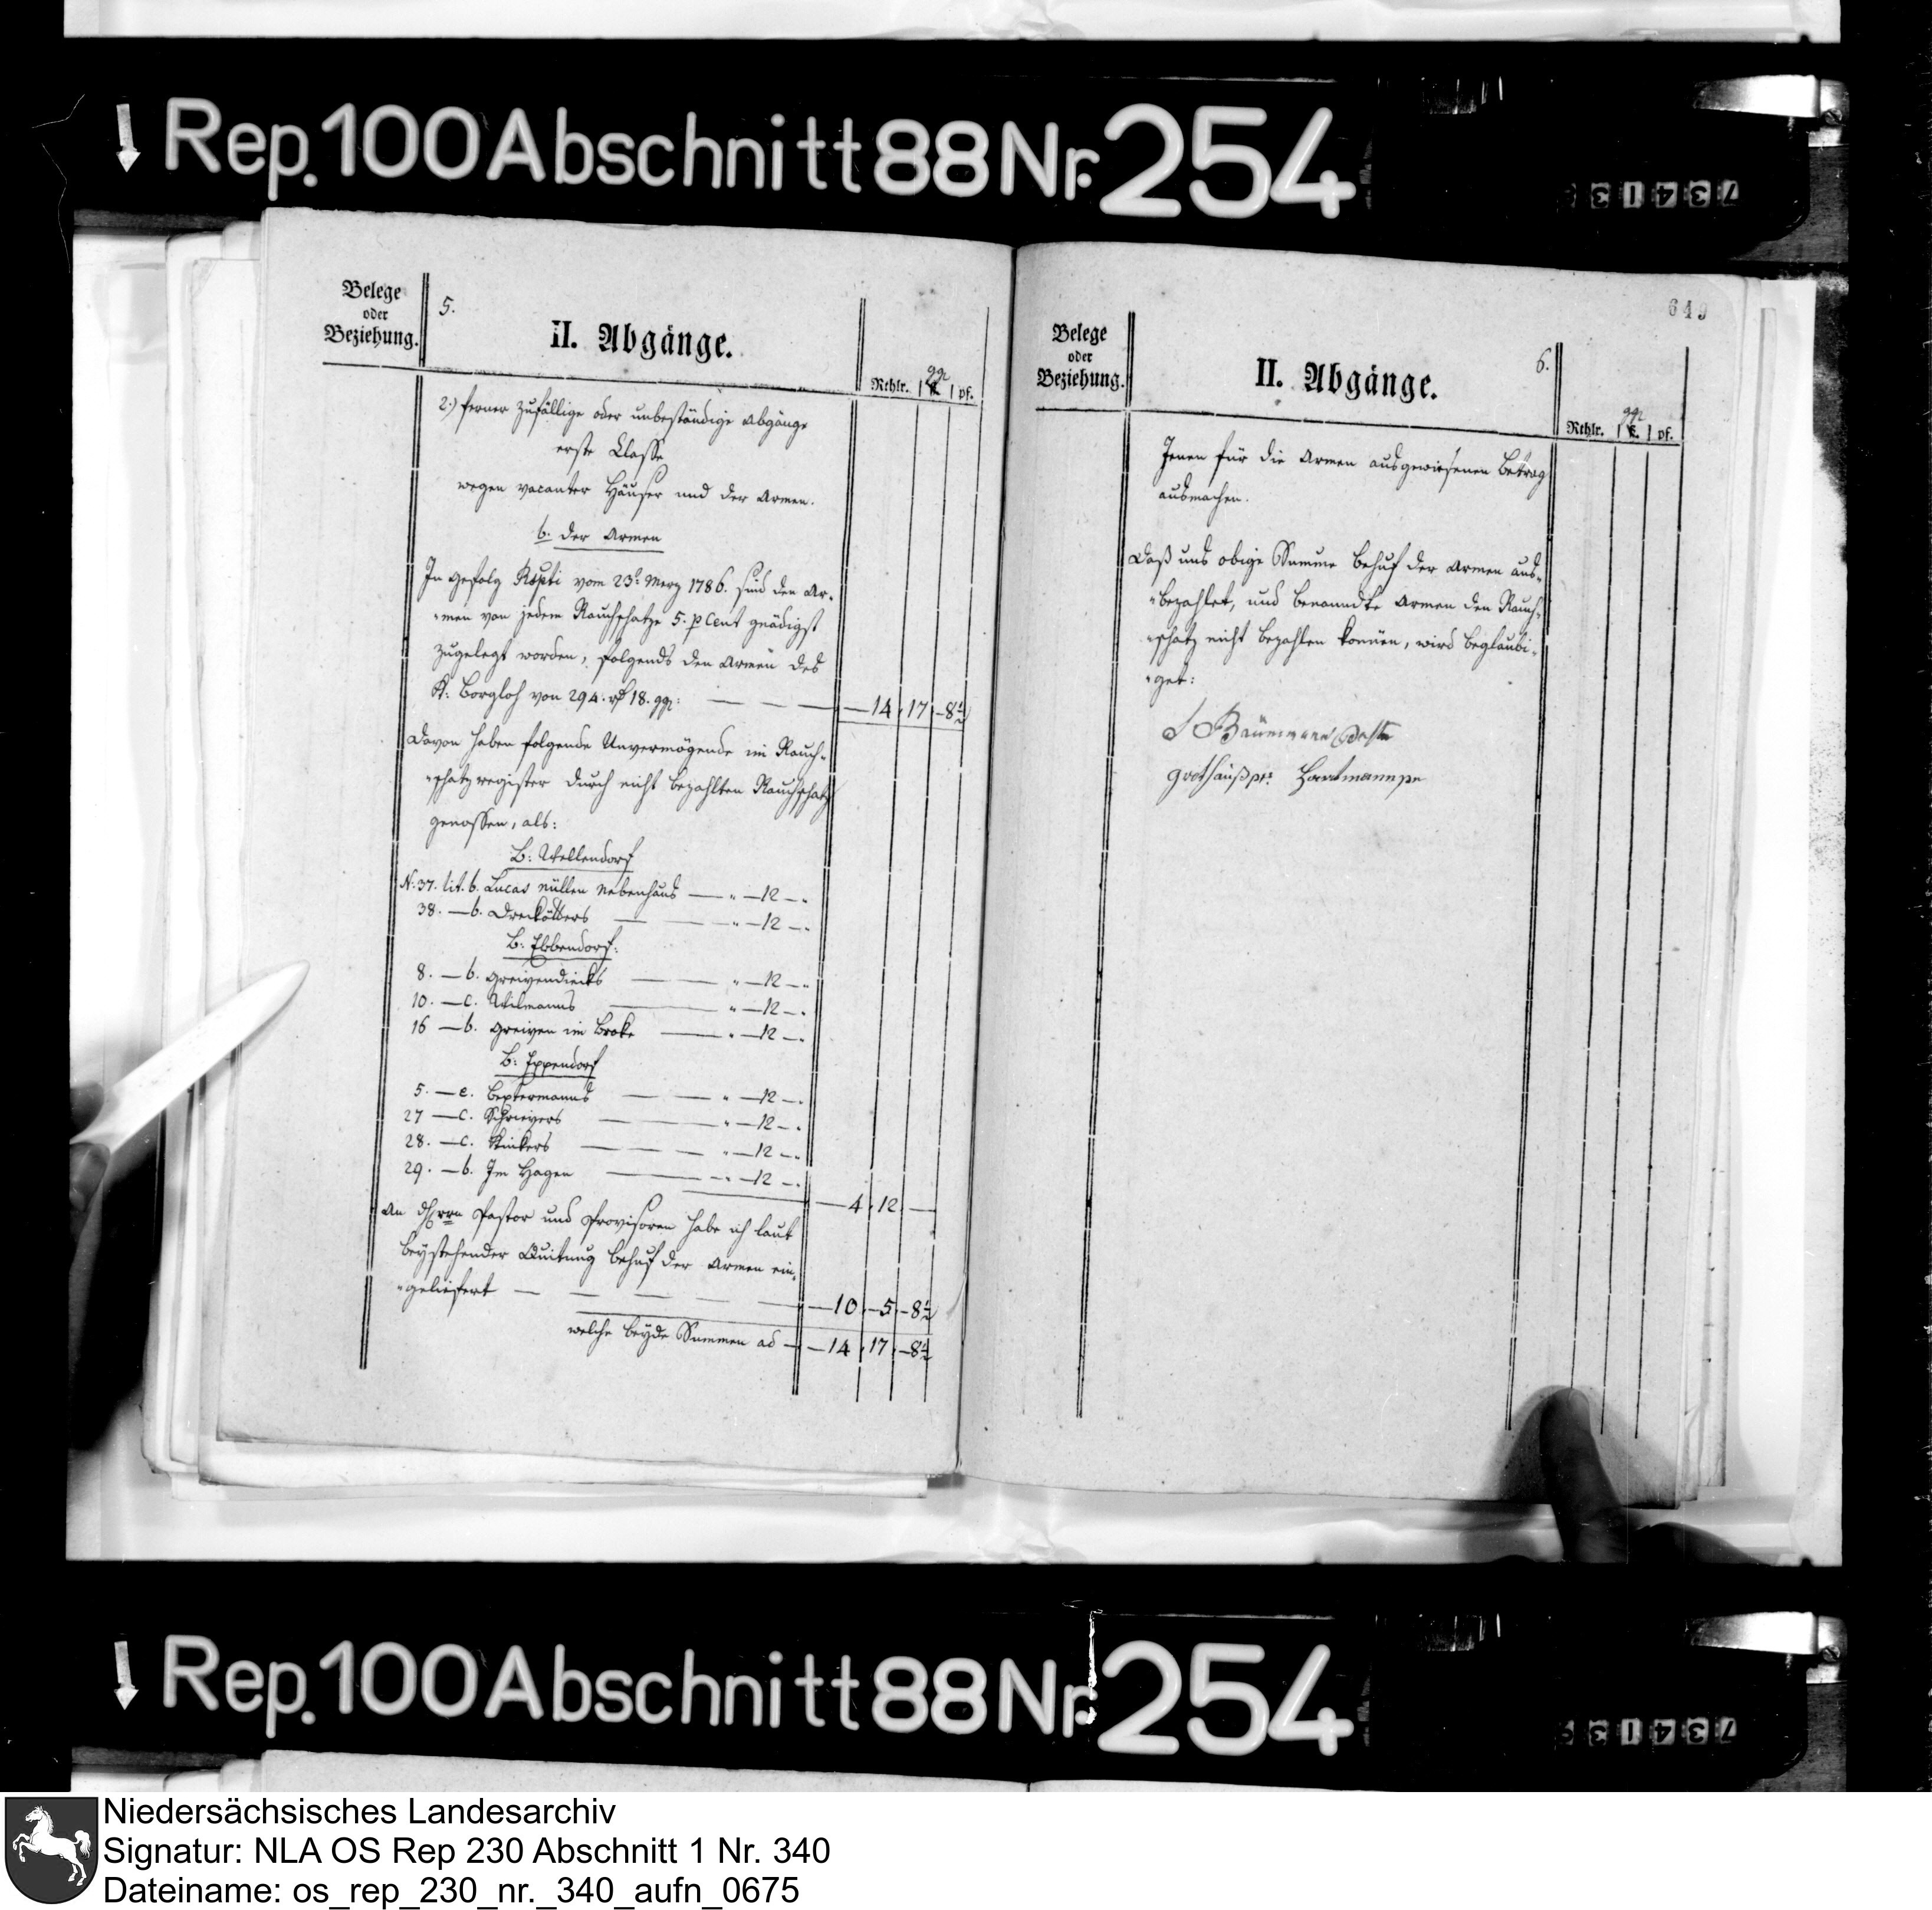 Rep. 100 Abschnitt 88 Nr. 254
Belege
oder
Beziehung.
5.
II. Abgänge.
Rthlr. | ggr | pf.
2.) ferner zufällige oder unbeständige Abgänge
erste Classe
wegen vacanter Häuser und der Armen.
b. der Armen
In gefolg Rspti vom 23t. Merz 1786. sind den Ar-
-men von jedem Rauchschatze 5. p Cent gnädigst
zugelegt worden, folgends den Armen des
K: Borgloh von 294. rt 18. ggr: — — — — 14 . 17 . — 8½
Davon haben folgende Unvermögende im Rauch-
-schatzregister durch nicht bezahlten Rauchschatz
genossen, als:
B: Wellendorf
N: 37. lit. b. Lucas Müllen Nebenhaus — „ — 12 — „
38. — b. Dreikötters — — „ — 12 — „
B: Ebbendorf:
8. — b. Greivendiecks — — „ — 12 — „
10. — c. Wilmanns — — „ — 12 — „
16 — b. Greiven im Broke — — „ — 12 — „
B: Eppendorf
5. — e. Bextermanns — — „ — 12 — „
27 — c. Schrievers — — „ — 12 — „
28. — c. Kinkers — — „ — 12 — „
29. — b. Im Hagen — — „ — 12 — „
— 4 . 12 . —
An Hrrn Pastor und Provisoren habe ich laut
beystehender Quitung behuf der Armen ein-
-geliefert — — — — — 10 . — 5 . — 8½
welche beyde Summen ad — — 14 . 17 . — 8½
649
Belege
oder
Beziehung.
6.
II. Abgänge.
Rthlr. | ggr | pf.
Jenen für die Armen ausgewiesenen Betrag
ausmachen.
Daß uns obige Summe behuf der Armen aus-
-bezahlet, und benanndte Armen den Rauch-
-schatz nicht bezahlen können, wird beglaubi-
-get:
Bäumann Pastor
grothauß pr: Hartmann pr
Rep. 100 Abschnitt 88 Nr. 254
Niedersächsisches Landesarchiv
Signatur: NLA OS Rep 230 Abschnitt 1 Nr. 340
Dateiname: os_rep_230_nr._340_aufn_0675